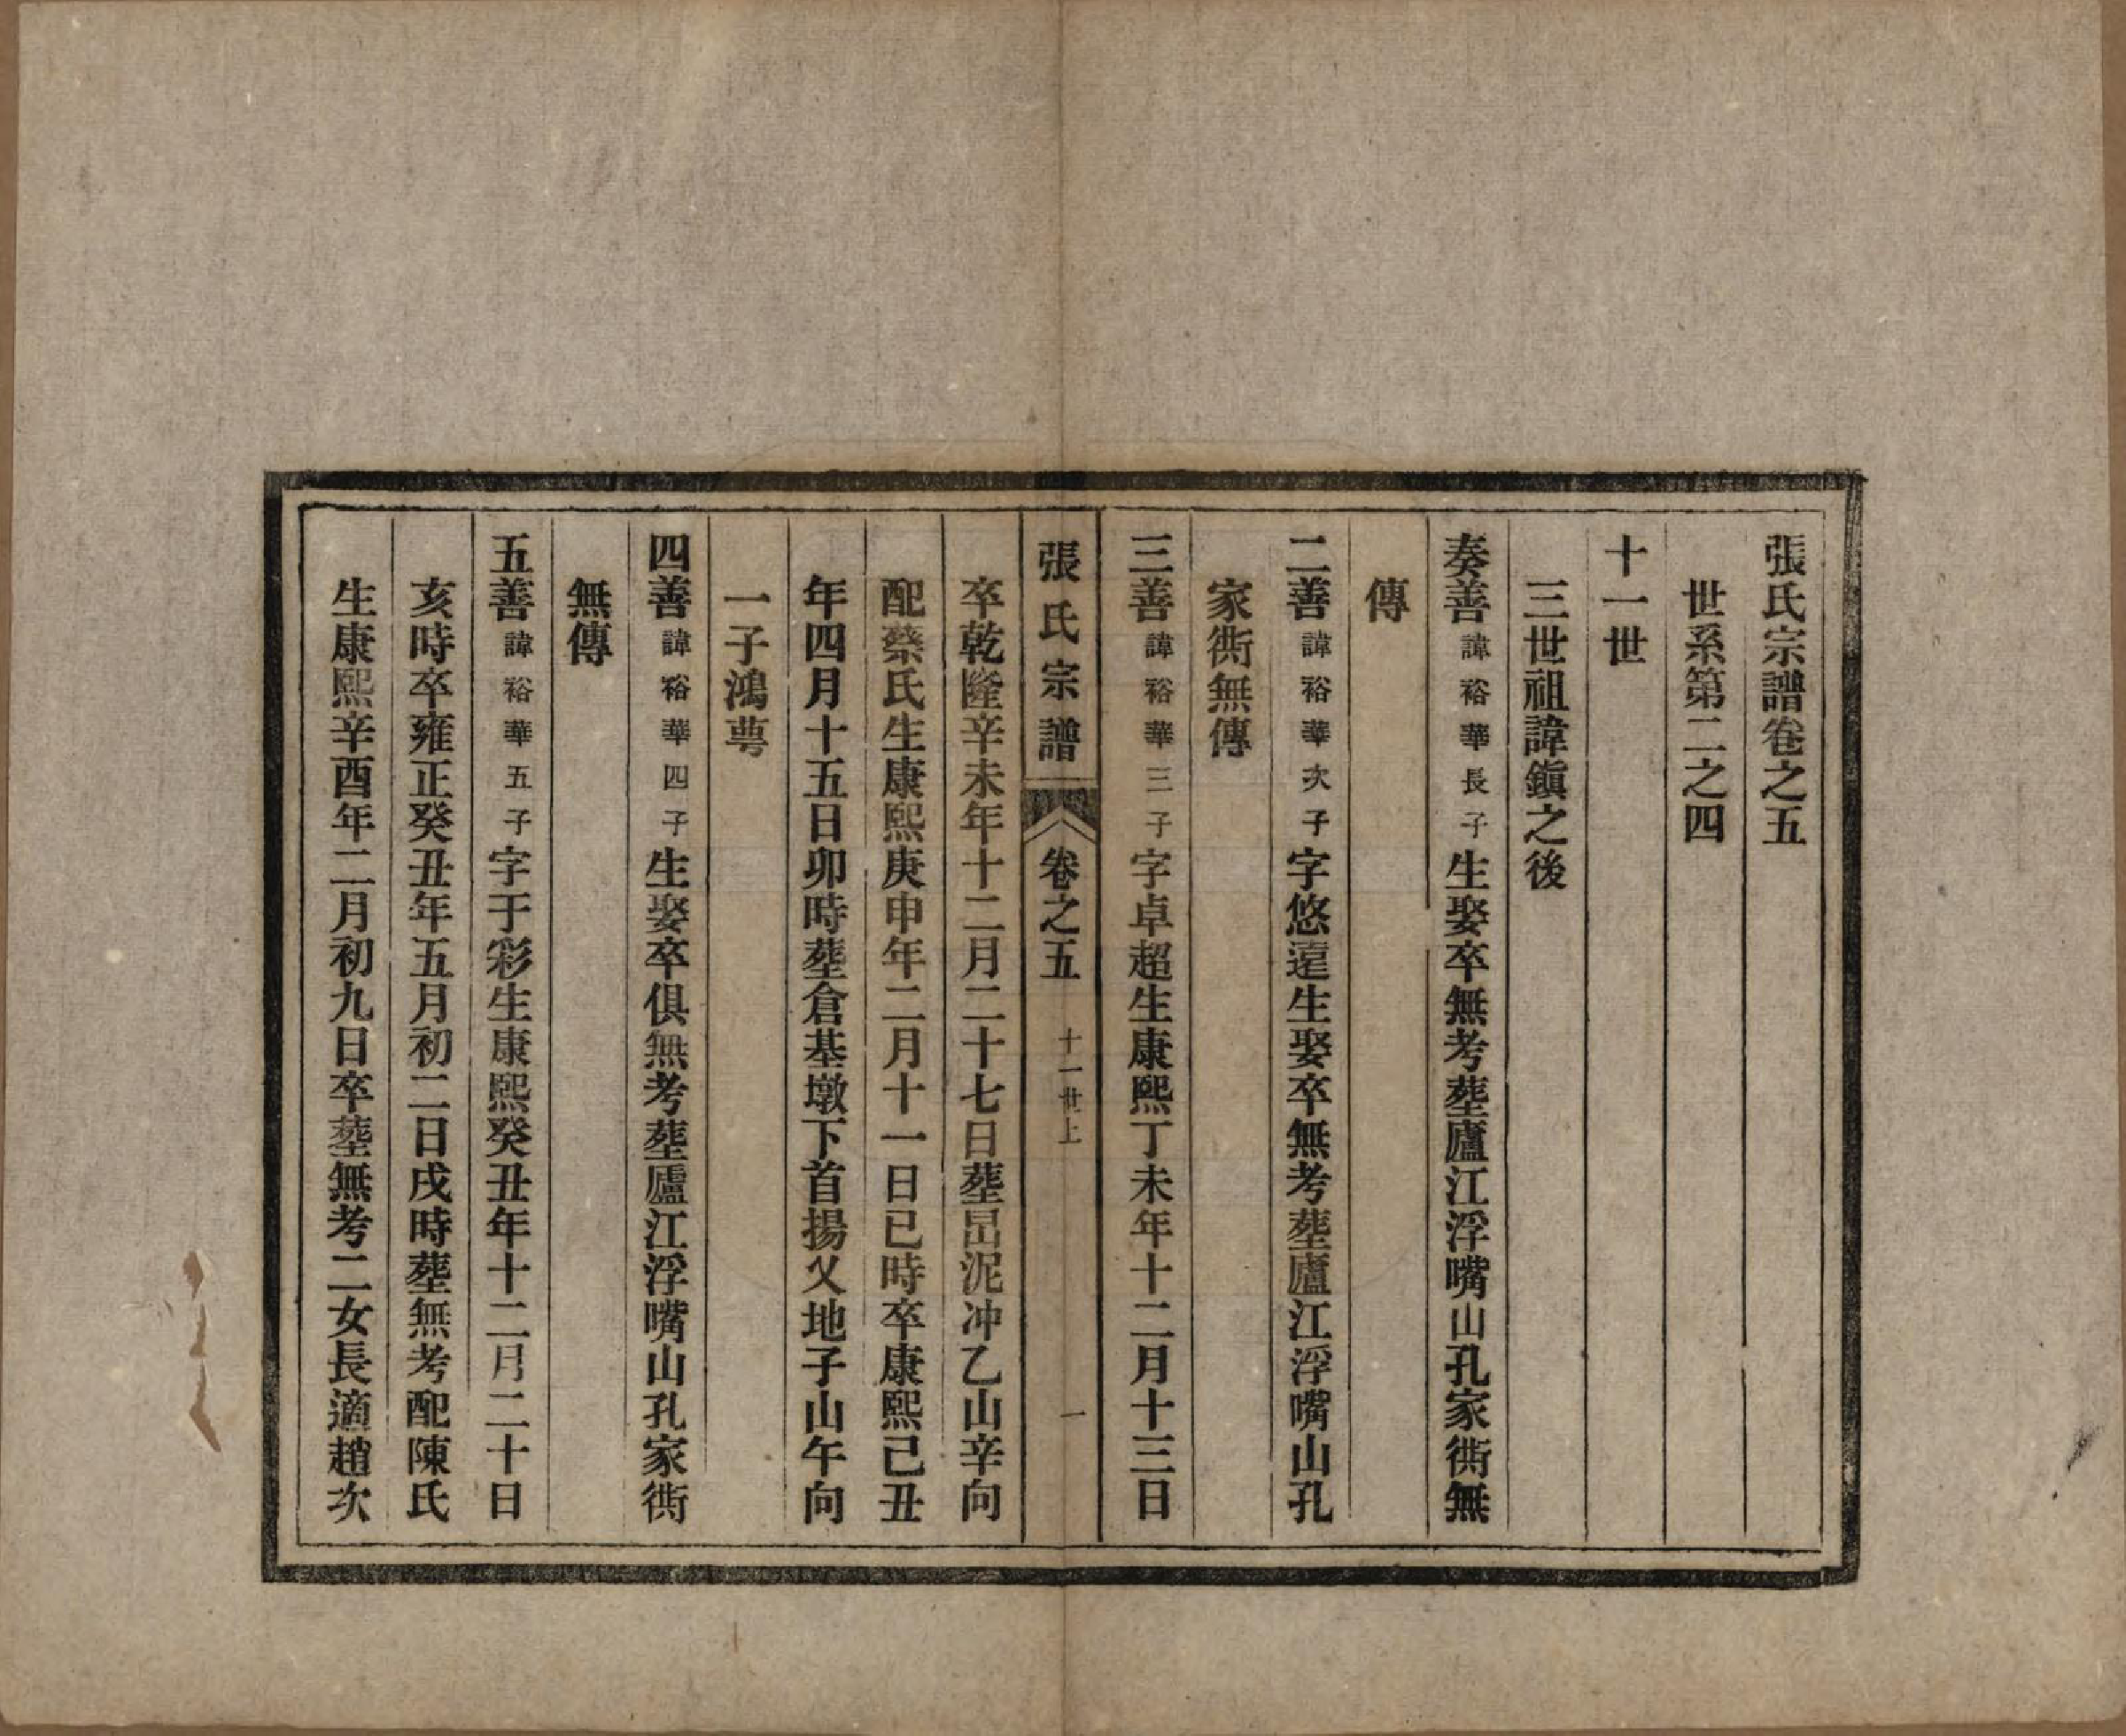 張氏宗譜卷之五
世系第二之四
十一世
三世祖諱鎭之後
奏善諱裕華長子生娶卒無考塟廬江浮嘴山孔家衖無
傳
二善諱裕華次子字悠遠生娶卒無考塟廬江浮嘴山孔
家衖無傳
三善諱裕華三子字卓超生康熙丁未年十二月十三日
張氏宗譜 卷之五 十一世上 一
卒乾隆辛未年十二月二十七日塟呂泥冲乙山辛向
配蔡氏生康熙庚申年二月十一日巳時卒康熙己丑
年四月十五日卯時塟倉基墩下首揚乂地子山午向
一子鴻蕚
四善諱裕華四子生娶卒俱無考塟廬江浮嘴山孔家衖
無傳
五善諱裕華五子字于彩生康熙癸丑年十二月二十日
亥時卒雍正癸丑年五月初二日戌時塟無考配陳氏
生康熙辛酉年二月初九日卒塟無考二女長適趙次